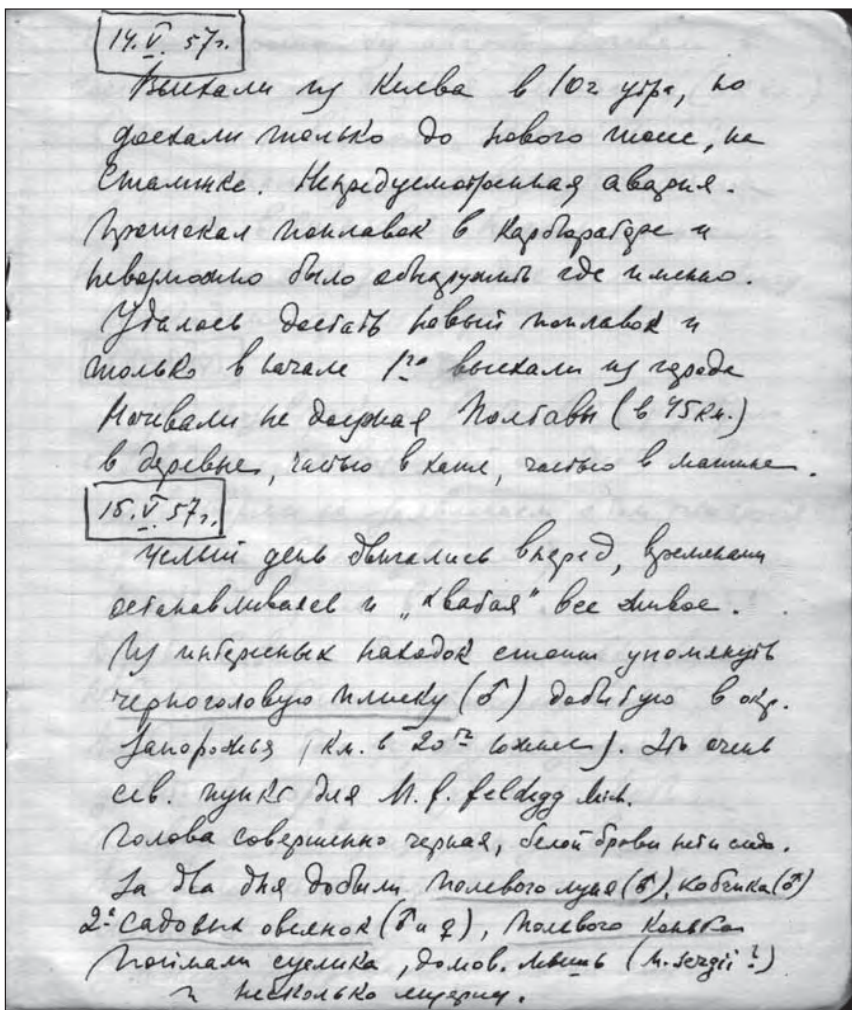 14.V. 57г.
Выехали из Киева в 10ч утра, но
доехали только до нового шоссе, на
Сталинке. Непредусмотренная авария.
Протекал поплавок в карбюраторе и
невозможно было обнаружить где именно.
Удалось достать новый поплавок и
только в начале 1го выехали из города
Ночевали не доезжая Полтавы (в 45км.)
в деревне, частью в хате, частью в машине.
15.V.57г.
Целый день двигались вперед, временами
останавливаясь и „хватая" все живое.
Из интересных находок стоит упомянуть
черноголовую плиску (♂) добытую в окр.
Запорожья (км. в 20ти южнее). Это очень
сев. пункт для M. f. feldegg Mich.
Голова совершенно черная, белой брови нет и следа.
За два дня добыли полевого луня (♂), кобчика (♂)
2х садовых овсянок (♂ и ♀), полевого конька
Поймали суслика, домов. мышь (m. sergii?)
и несколько ящериц.